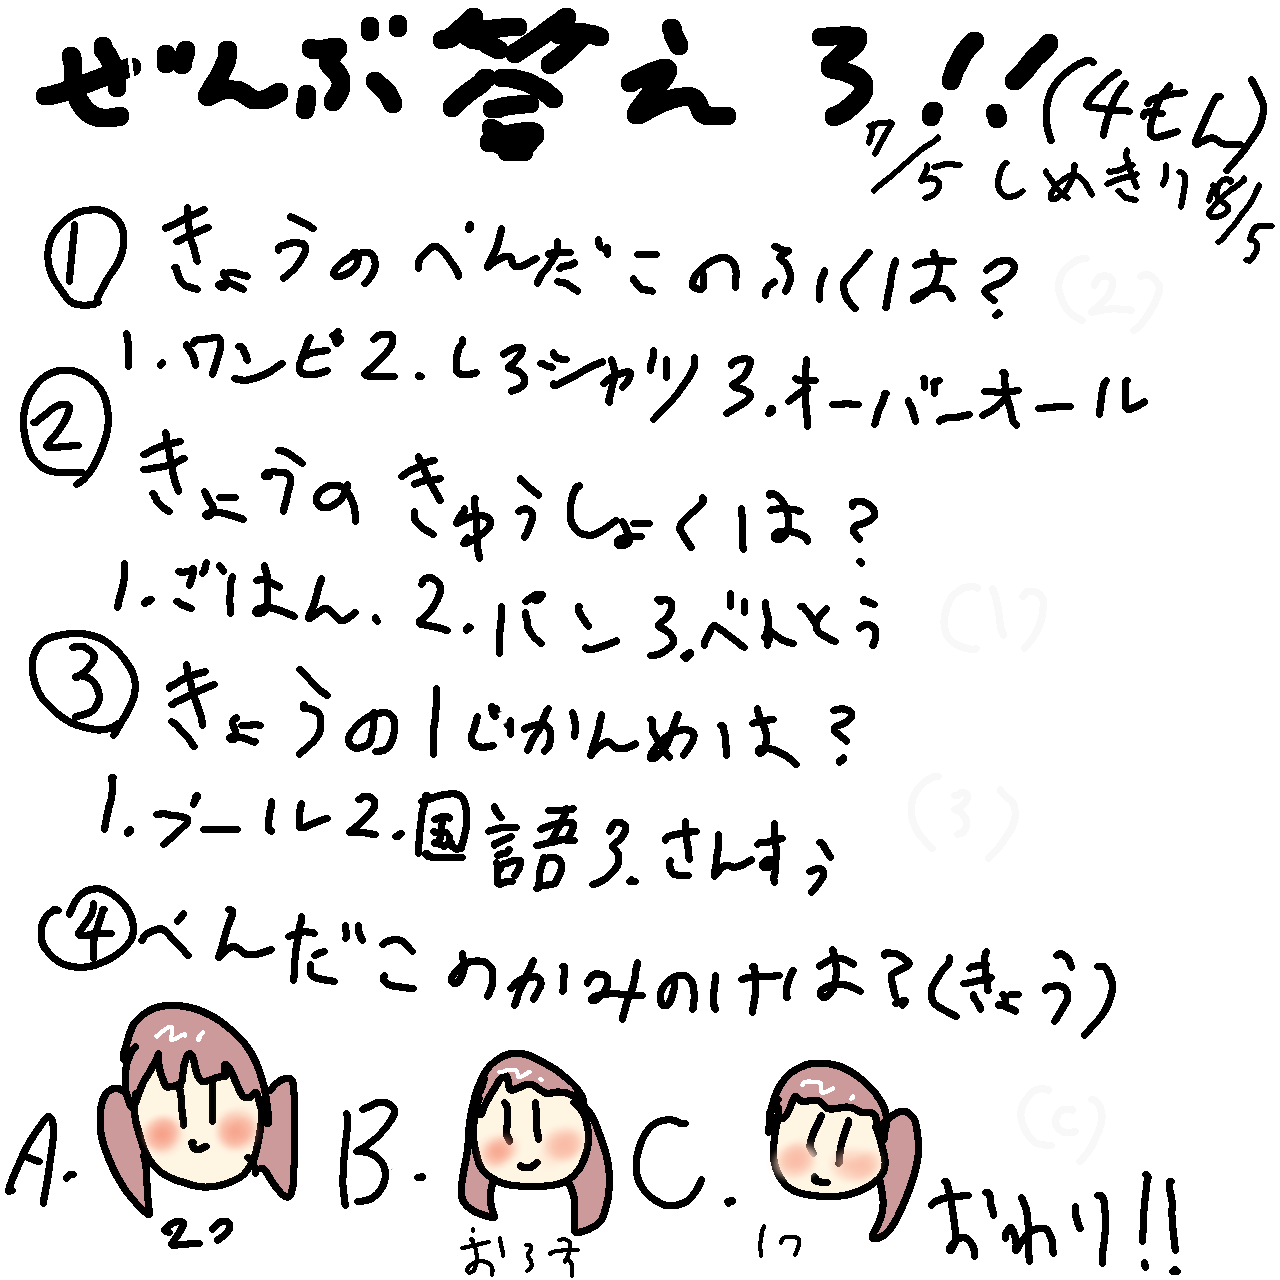 ぜんぶ答えろ!!(4もん)
7/5しめきり8/5
①きょうのべんだこのふくは? (2)
1.ワンピ2.しろシャツ3.オーバーオール
②きょうのきゅうしょくは?
1.ごはん.2.パン3.べんとう (1)
③きょうの1じかんめは?
1.プール2.国語3.さんすう (3)
④べんだこのかみのけは?(きょう)
A. B. C. (c)
2つ おろす 1つ おわり!!